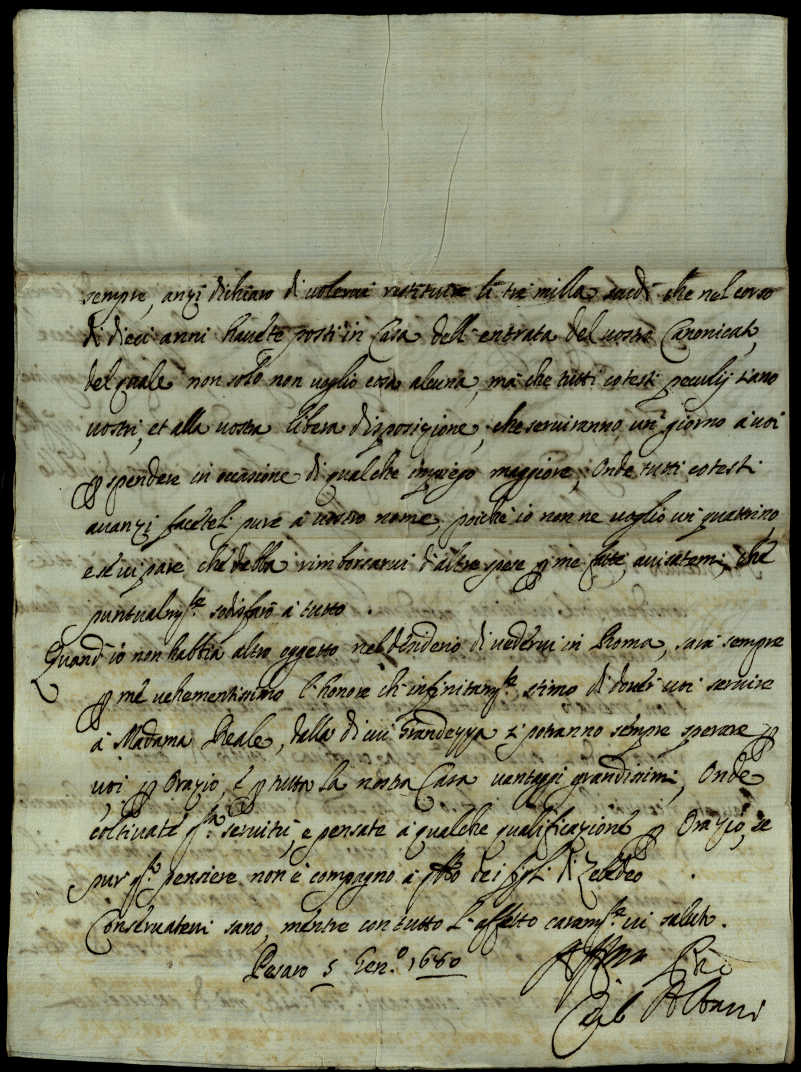 sempre, anzi dichiaro di volervi restituire li tre milla scudi che nel corso
di dieci anni havete posti in Casa dell'entrata del vostro Canonicato,
del quale non solo non voglio cosa alcuna, ma che tutti cotesti peculij siano
vostri, et alla vostra libera disposizione, che serviranno un giorno à voi
p spendere in occasione di qualche impiego maggiore; Onde tutti cotesti
avanzi faceteli pure à vostro nome, poiche io non ne voglio un quattrino,
e se vi pare che debba rimborsarvi d'altre spese p me fatte, avisatemi, che
puntualm.te sodisfarò à tutto.
Quand'io non habbia altro oggetto nel desiderio di vedervi in Roma, sarà sempre
p me vehementissimo l'honore ch'infinitam.te stimo di dover voi servire
à Madama Reale, dalla di cui Grandezza si potranno sempre sperare p
voi, p Orazio, e p tutta la nostra Casa vantaggi grandissimi; Onde
coltivate q.ta servitù, e pensate à qualche qualificazione p Orazio, se
pur q.to pensiere non è compagno à q.llo dei figli di Zebedeo.
Conservatevi sano, mentre con tutto l'affetto caram.te vi saluto.
Pesaro 5 Gen.o 1680
Albani